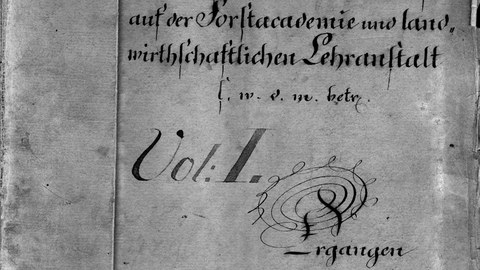 auf der Forstacademie und land=
wirthschaftlichen Lehranstalt
s. w. d. m. betr.
Vol: I.
Ergangen